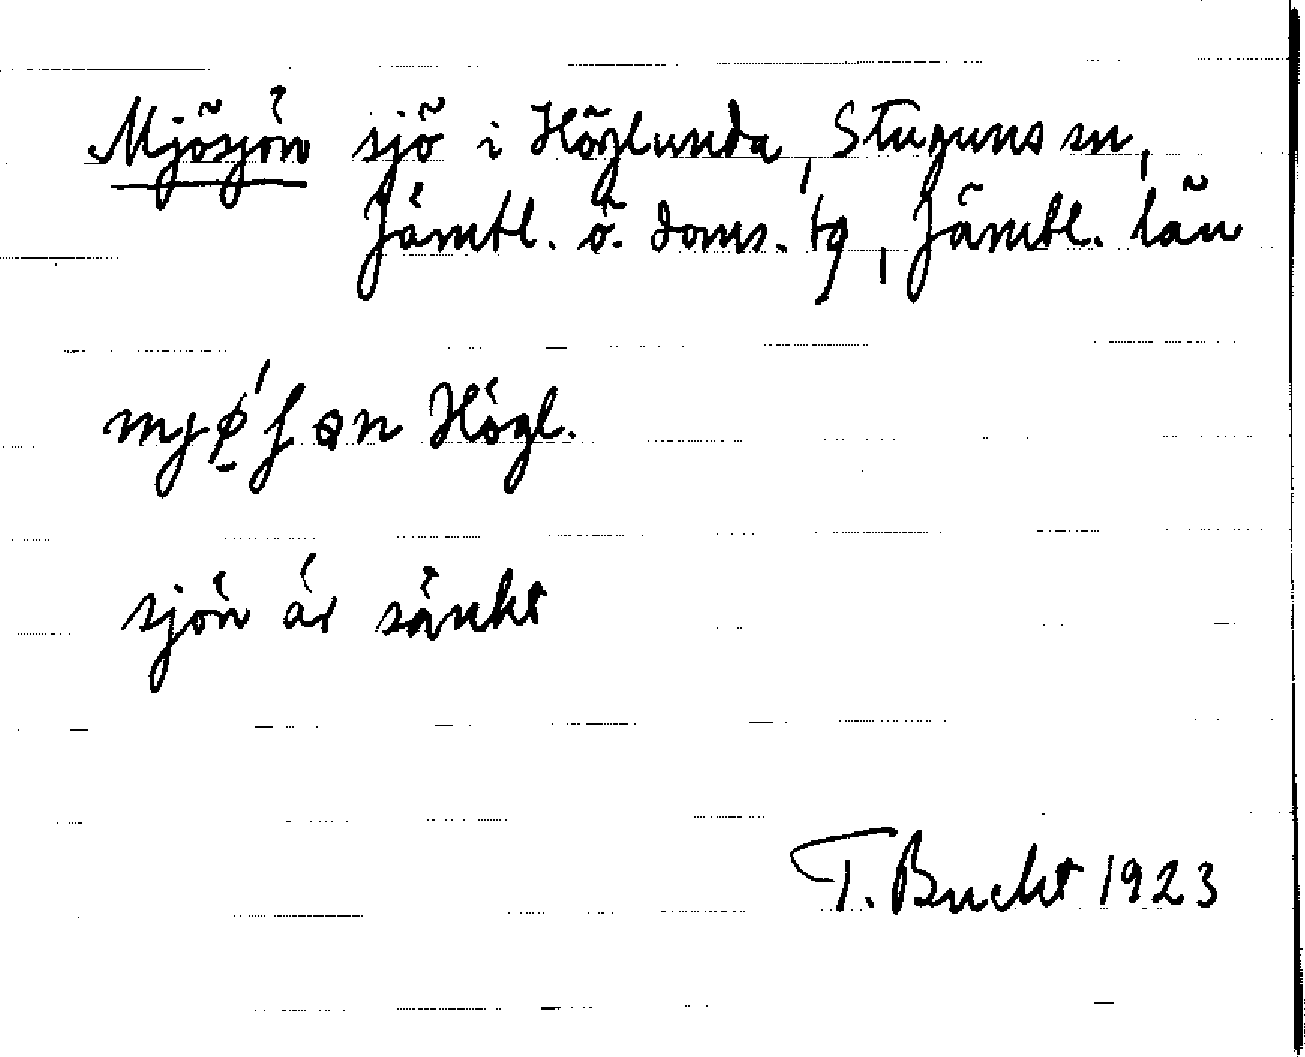 Mjösjön sjö i Höglunda, Stuguns sn,
Jämtl. ö. doms. tg, Jämtl. län
Högl.
sjön är sänkt
T. Bucht 1923